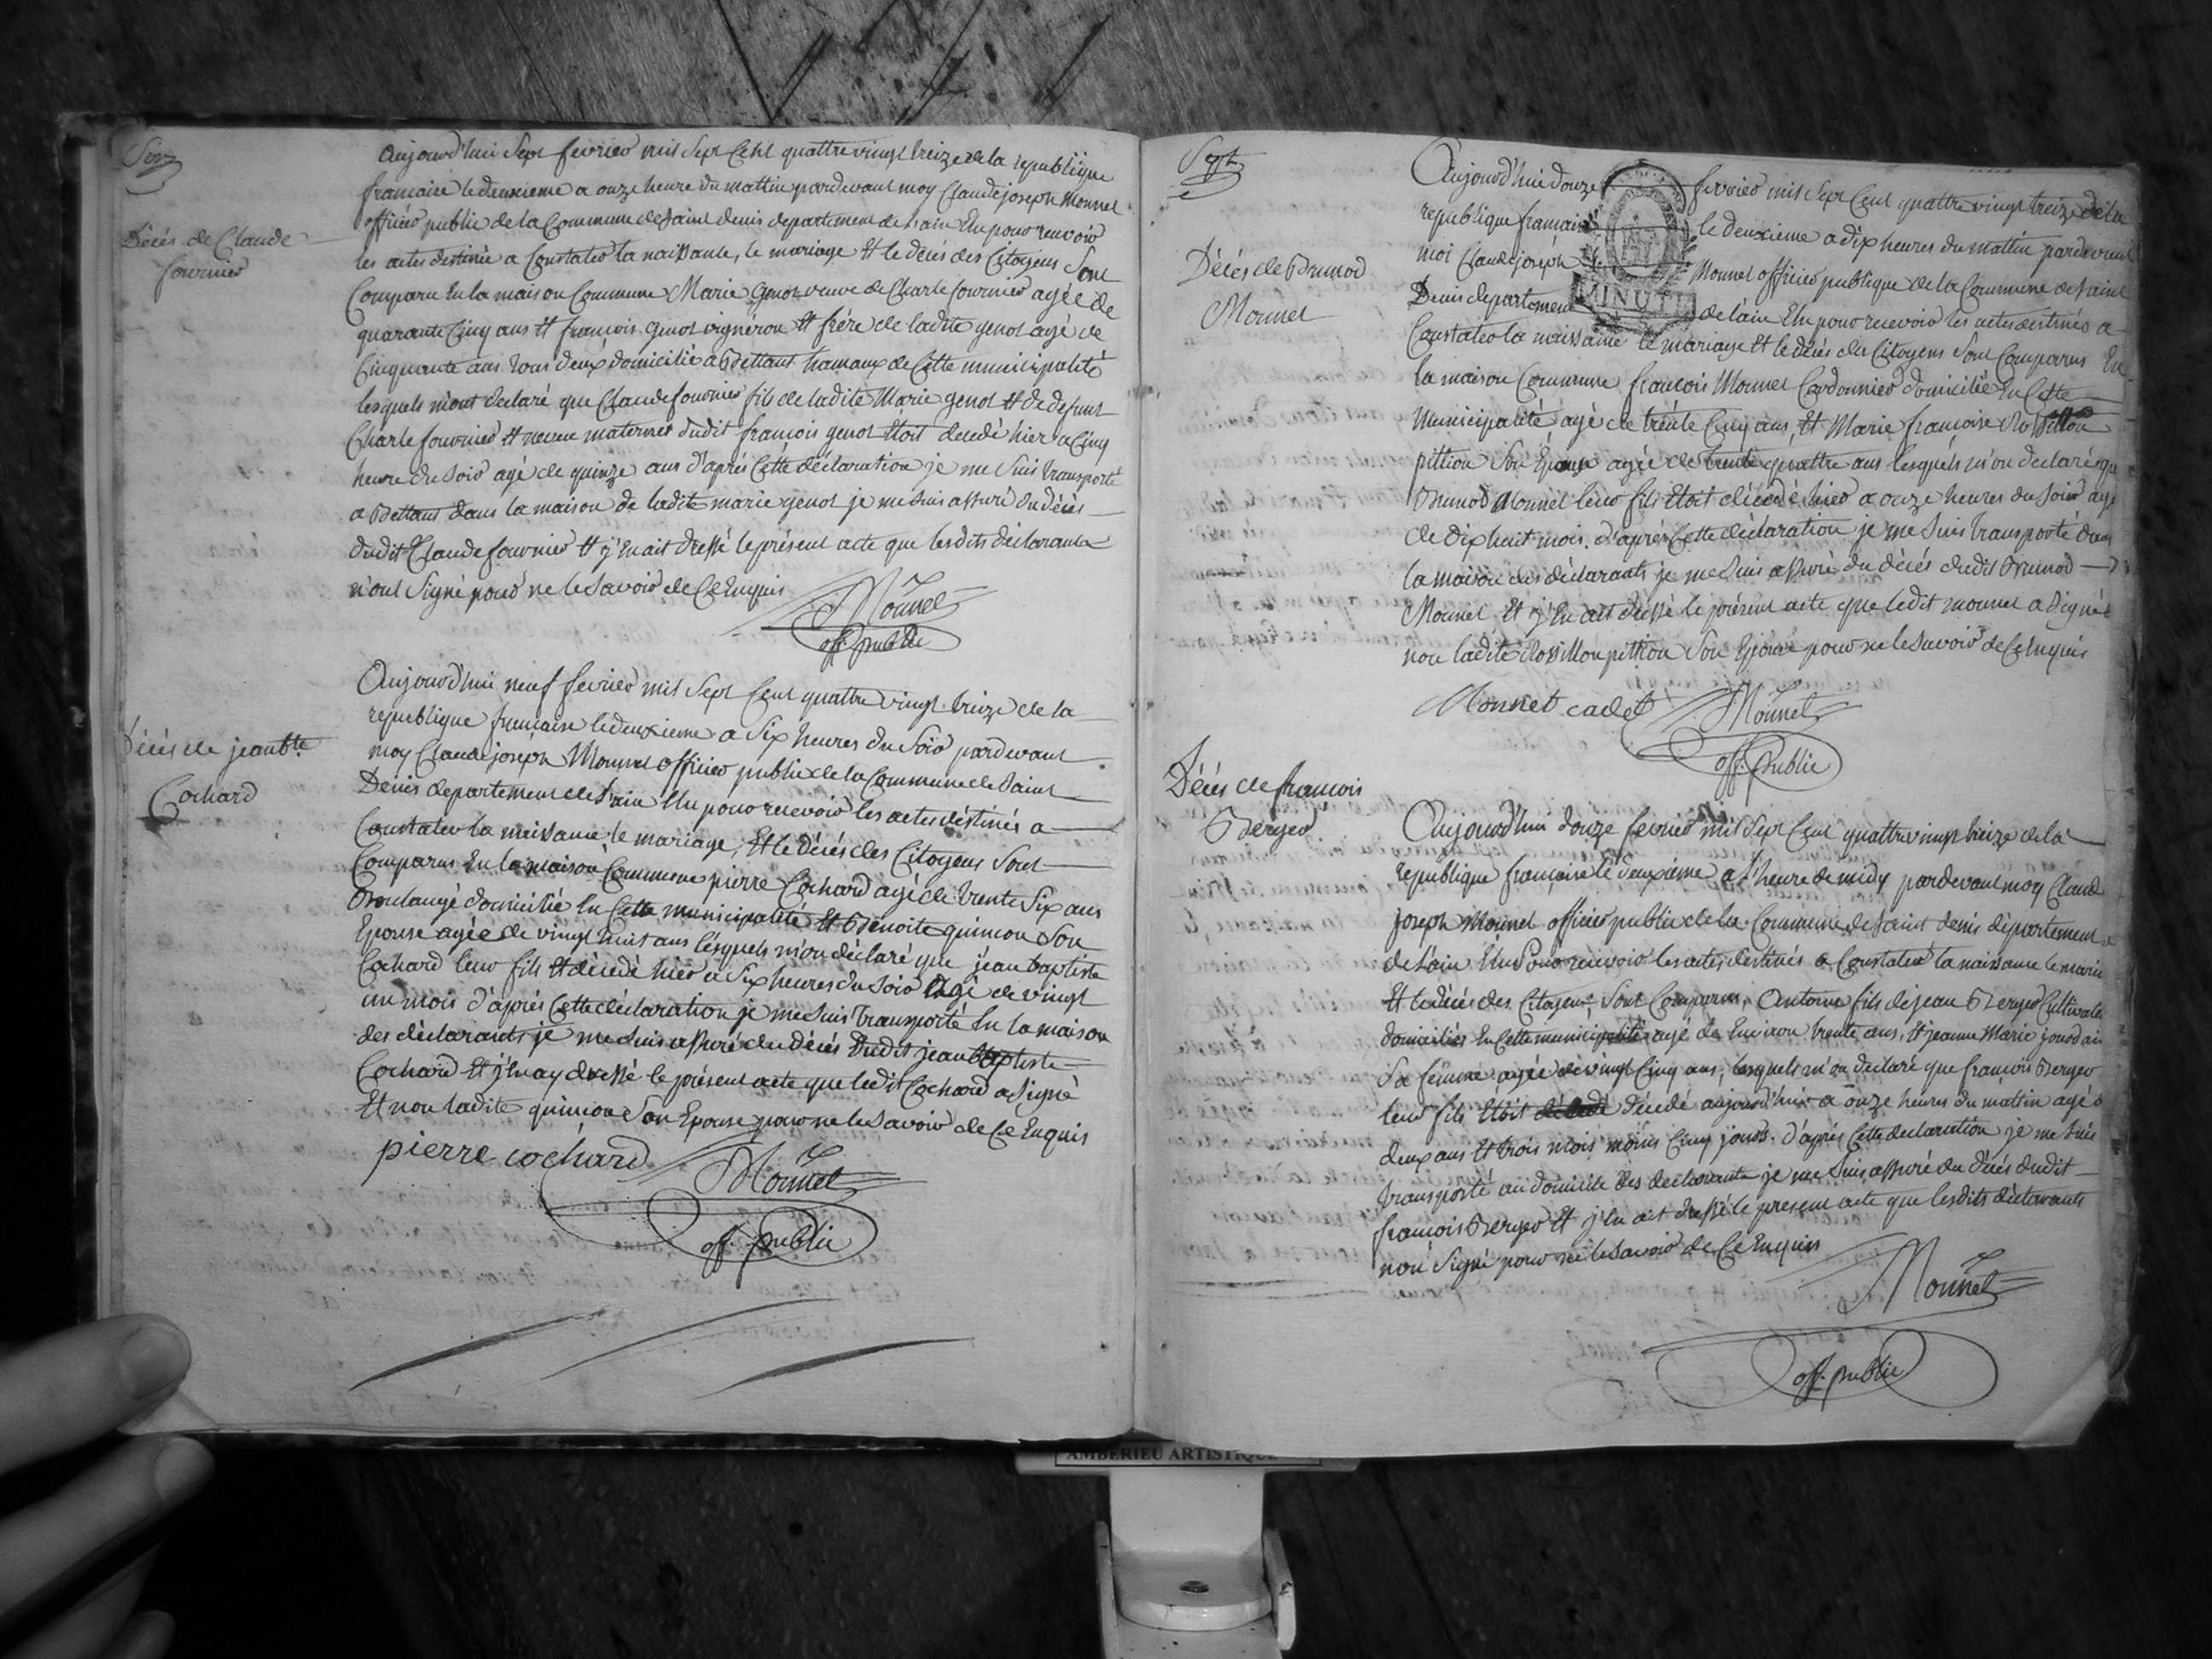 Six
Décés de Claude
fournier
Aujourd'hui Sept fevrier mil Sept Cent quattre vingt treize de la republique
francaise le deuxieme a onze heure du mattin pardevant moy Claude joseph Monnet
officier public de la Commune de Saint denis departement de Lain Elu pour recevoir
les actes destinée a Constater la naissance, le mariage Et le décés des Citoyens Sont
Comparu En la maison Commune Marie Genot veuve de Charle fournier agée de
quarante Cinq ans Et francois genot vigneron Et frére de ladite genot agé de
Cinquante ans tous deux domicilié a Bettant hamaux de Cette municipalité
lesquels m'ont declaré que Claude fournier fils de ladite Marie genot Et de defunt
Charle fournier Et neveu maternel dudit francois genot Etoit decedé hier a Cinq
heure du Soir agé de quinze ans d'aprés Cette déclaration je me Suis transporté
a Bettant dans la maison de ladite marie genot je me suis assuré du décés
dudit Claude fournier Et j'En ait dressé le présent acte que lesdits déclarants
n'ont Signé pour ne le Savoir de Ce Enquis
Monnet
off. public
Décés de jean bte
Cochard
Aujourd'hui neuf fevrier mil Sept Cent quattre vingt treize de la
republique francaise le deuxieme a Six heures du Soir pardevant
moy Claude joseph Monnet officier public de la Commune de Saint
Denis departement de Lain Elu pour recevoir les actes déstinés a
Constater la naissance, le mariage, Et le décés des Citoyens Sont
Comparus En la maison Commune pierre Cochard agé de trente Six ans
Boulangé domicilié En Cette municipalité Et Benoite quinson Son
Epouse agée de vingt huit ans lésquels m'on déclaré que jean baptiste
Cochard leur fils Et décédé hier a Six heures du Soir agé de vingt
un mois d'aprés Cette déclaration je me Suis transporté En la maison
des déclarants je me Suis assuré du décés dudit jean baptiste
Cochard Et j'En ay dressé le présent acte que ledit Cochard a Signé
Et non ladite quinson Son Epouse pour ne le Savoir de Ce Enquis
pierre cochard Monnet
off. public
Sept
Décés de Brunod
Monnet
Aujourd'hui douze fevrier mil Sept Cent quattre vingt treize de la
republique francaise le deuxieme a dix heures du mattin pardevant
moi Claude joseph Monnet officier publique de la Commune de Saint
Denis departement de lain Elu pour recevoir les actes destinés a
MINUTE
Constater la naissance le mariage Et le décés des Citoyens Sont Comparus En
la maison Commune francois Monnet Cordonnier domicilié En Cette
Municipalité agé de trente Cinq ans, Et Marie francoise Rossillon
pittion Son Epouse agée de trente quattre ans lesquels m'on declaré que
Brunod Monnet leur fils Etoit décédé hier a onze heures du Soir agé
de dix huit mois. d'aprés Cette déclaration je me Suis transporté dans
la maison des déclarants je me Suis assuré du décés dudit Brunod
Monnet Et j'En ait dressé le présent acte que ledit monnet a Signé
non ladite Rossillon pittion Son Epouse pour ne le Savoir de Ce Enquis
Monnet cadet Monnet
off. public
Décés de francois
Berger
Aujourd'hui douze fevrier mil Sept Cent quattre vingt treize de la
republique francaise le deuxieme a l'heure de midy pardevant moy Claude
joseph Monnet officier public de la Commune de Saint denis département
de Lain Elu Pour recevoir les actes destinés a Constater la naissance le mariage
Et le décés des Citoyens, Sont Comparus, Antoine fils de jean Berger Cultivateur
domiciliés En Cette municipalité agé de Environ trente ans, Et jeanne Marie jourdain
Sa femme agée de vingt Cinq ans, lesquels m'on declaré que francois Berger
leur fils Etoit décédé aujourd'hui a onze heures du mattin agé
deux ans Et trois mois moins Cinq jours. d'aprés Cette declaration je me Suis
transporté au domicile des declarants je me Suis assuré du décés dudit
francois Berger Et j'En ait dressé le present acte que lesdits déclarants
non Signé pour ne le Savoir de Ce Enquis
Monnet
off. public
AMBERIEU ARTISTIQUE